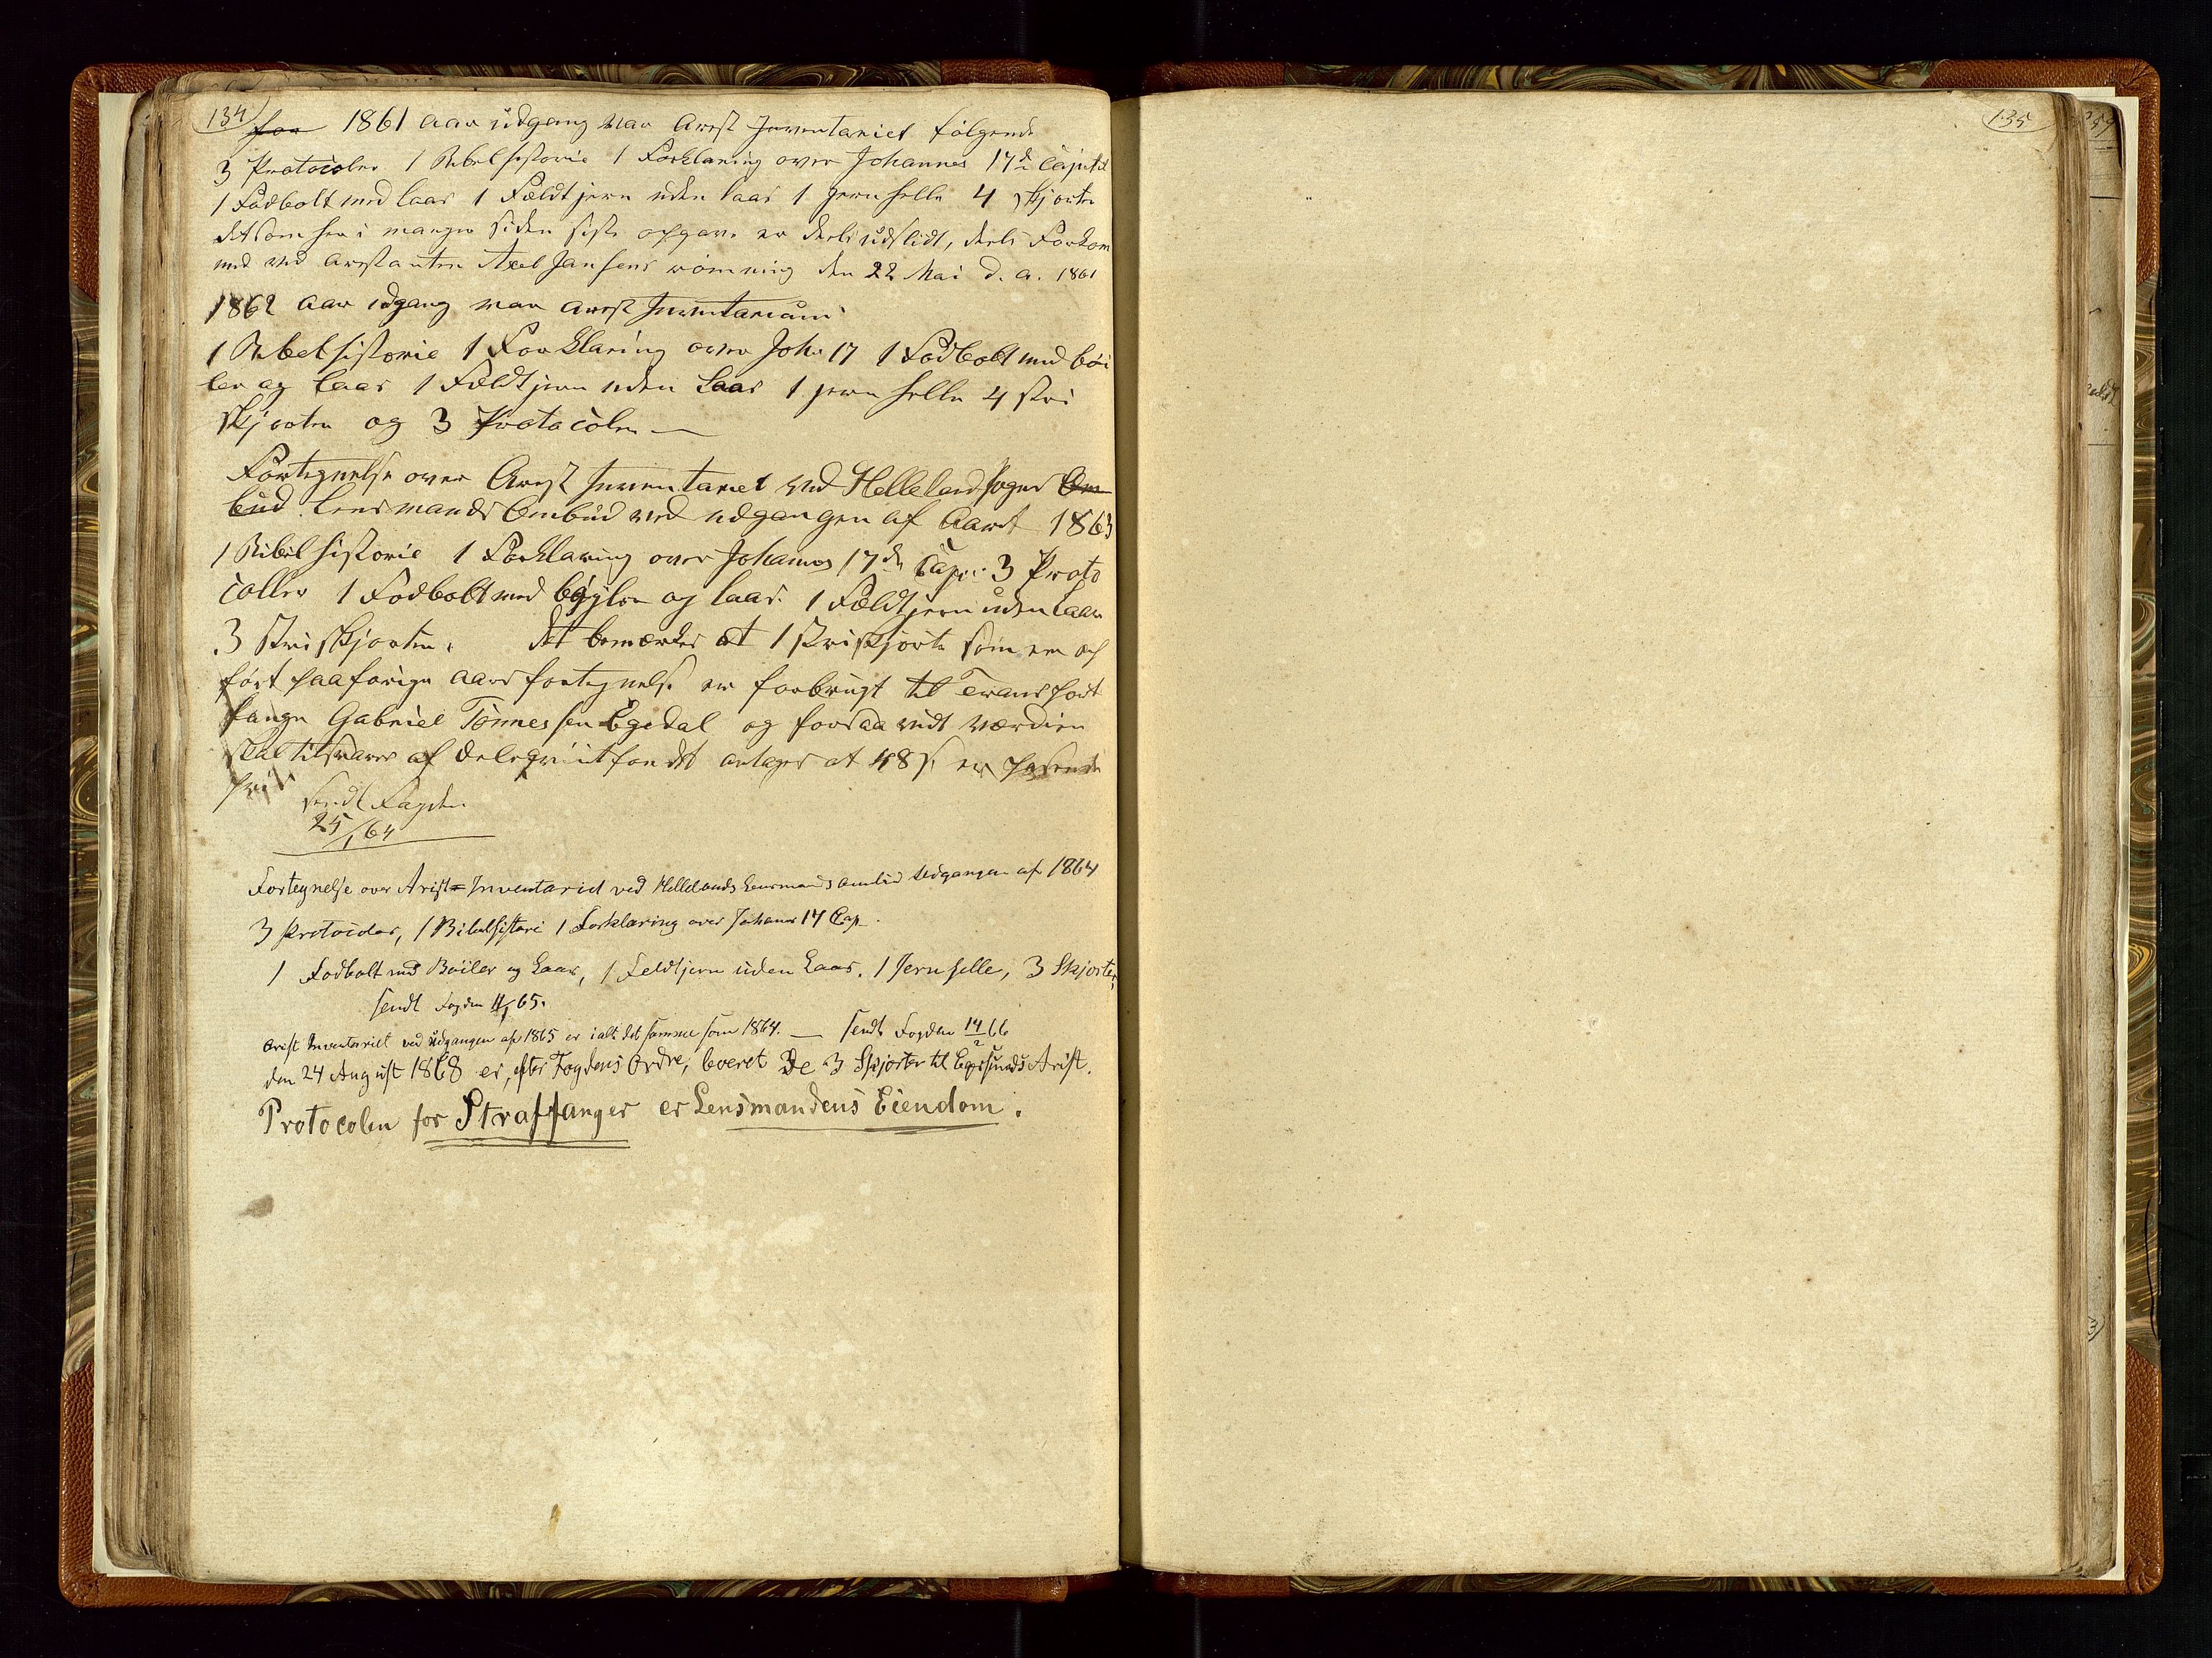 134
for 1861 aar udgang var Arest Inventariet følgende
3 Protocoler 1 Bibelhistorie 1 Forklaring over Johannes 17de Capitel
1 Fodbolt med laas 1 Fældtjern uden laas 1 jern helle 4 skjorter
det som her i mangen siden siste opgave er deels udslidt, deels Forkom
met ved arestanten Axel Jansens rømming den 22 Mai d. a. 1861
1862 aar udgang var arest Inventarium
1 Bibelhistorie 1 Forklaring over Joh. 17 1 Fodbolt med bøi
ler og laas 1 Fældtjern uden Laas 1 jern helle 4 stri
skjorter og 3 Protocoler
Fortegnelse over Arest Inventariet ved Helleland sogns Om
bud Lensmands Ombud ved udgangen af Aaret 1863
1 Bibel historie 1 Forklaring over Johannes 17de Cap: 3 Proto
coller 1 Fodbolt med bøyler og laas. 1 Fældtjern uden Laas
3 Striskjorter. det bemærkes at 1 striskjorte som er op
ført paa forige aars fortegnelse er forbrugt til Transport
fange Gabriel Tønnessen Egedal og forsaavidt værdien
skal tilsvares af Deleqvintfondet antages at 48 s. er pasende
pris
sendt Fogden
25/1 64
Fortegnelse over Arist=Inventariet ved Hellelands Lensmands ombud Udgangen af 1864
3 Protocoler, 1 Bibelhistori 1 Forklaring over Johanes 17 Cap.
1 Fodbolt med Bøiler og Laas, 1 Feldtjern uden Laas. 1 Jernhelle, 3 Skjorter,
sendt Fogden 4/1 65.
Arist Inventariet ved Udgangen af 1865 er i alt det samme som 1864. — sendt Fogden 14/2 66
den 24 August 1868 er, efter Fogdens Ordre, leveret De 3 Skjorter til Egersunds Arist.
Protocolen for Straffanger er Lensmandens Eiendom.
135